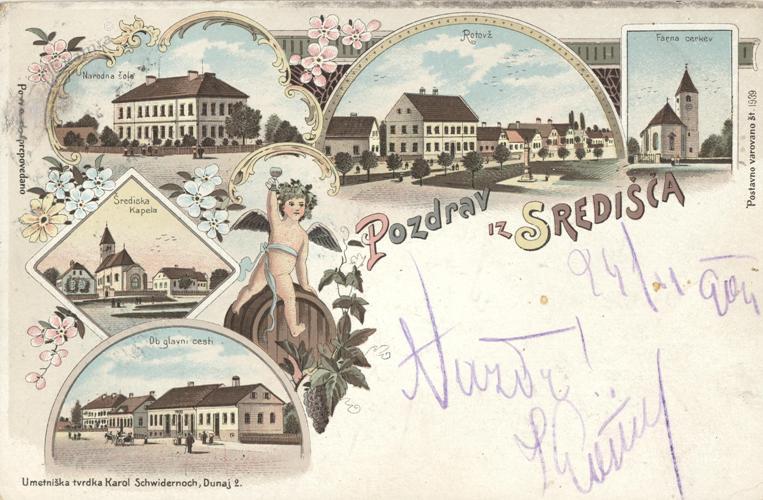 Narodna šola
Rotovž
Farna cerkev
Središka
Kapela
Pozdrav iz SREDIŠČA
Ob glavni cesti
Umetniška tvrdka Karol Schwidernoch, Dunaj 2.
Postavno varovano št. 1939
24/11 904
Nazdr!